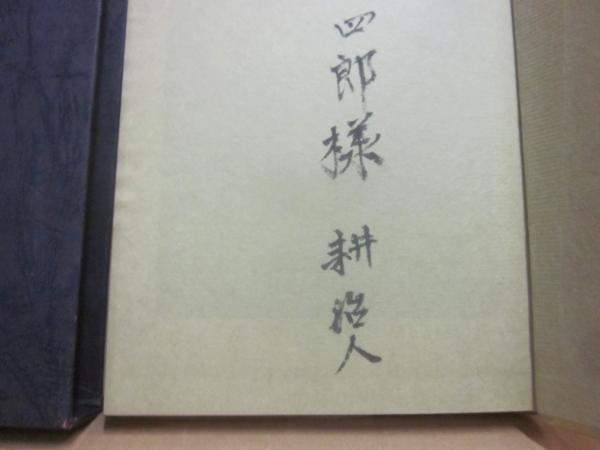 四郎様 耕治人